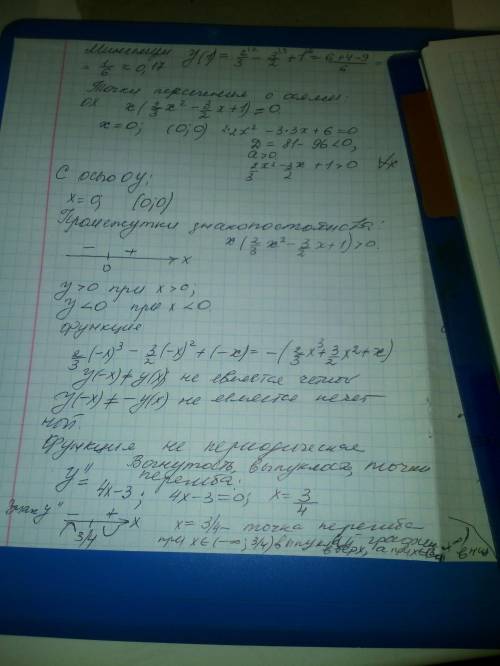 Минимум y(1) = 2/3 - 3/2 + 1 = (6+4-9)/6 =
= 1/6 ≈ 0,17
Точки пересечения с осями:
OX x(2/3 x² - 3/2 x + 1) = 0.
x = 0; (0;0) 2·2x² - 3·3x + 6 = 0
D = 81 - 96 < 0,
a > 0
2/3 x² - 3/2 x + 1 > 0 ∀x
С осью OY:
x = 0; (0;0)
Промежутки знакопостоянства:
x(2/3 x² - 3/2 x + 1) > 0.
- + x
0
y > 0 при x > 0;
y < 0 при x < 0.
Функция
2/3 (-x)³ - 3/2 (-x)² + (-x) = -(2/3 x³ + 3/2 x² + x)
y(-x) ≠ y(x) не является четн
y(-x) ≠ -y(x) не является нечет
ной.
Функция не периодическая
Вогнутость, выпуклость, точки
перегиба:
y'' = 4x - 3; 4x - 3 = 0; x = 3/4
Знак y'' - + x
3/4
x = 3/4 - точка перегиба
при x ∈ (-∞; 3/4) выпуклый график
вверх, а при вниз